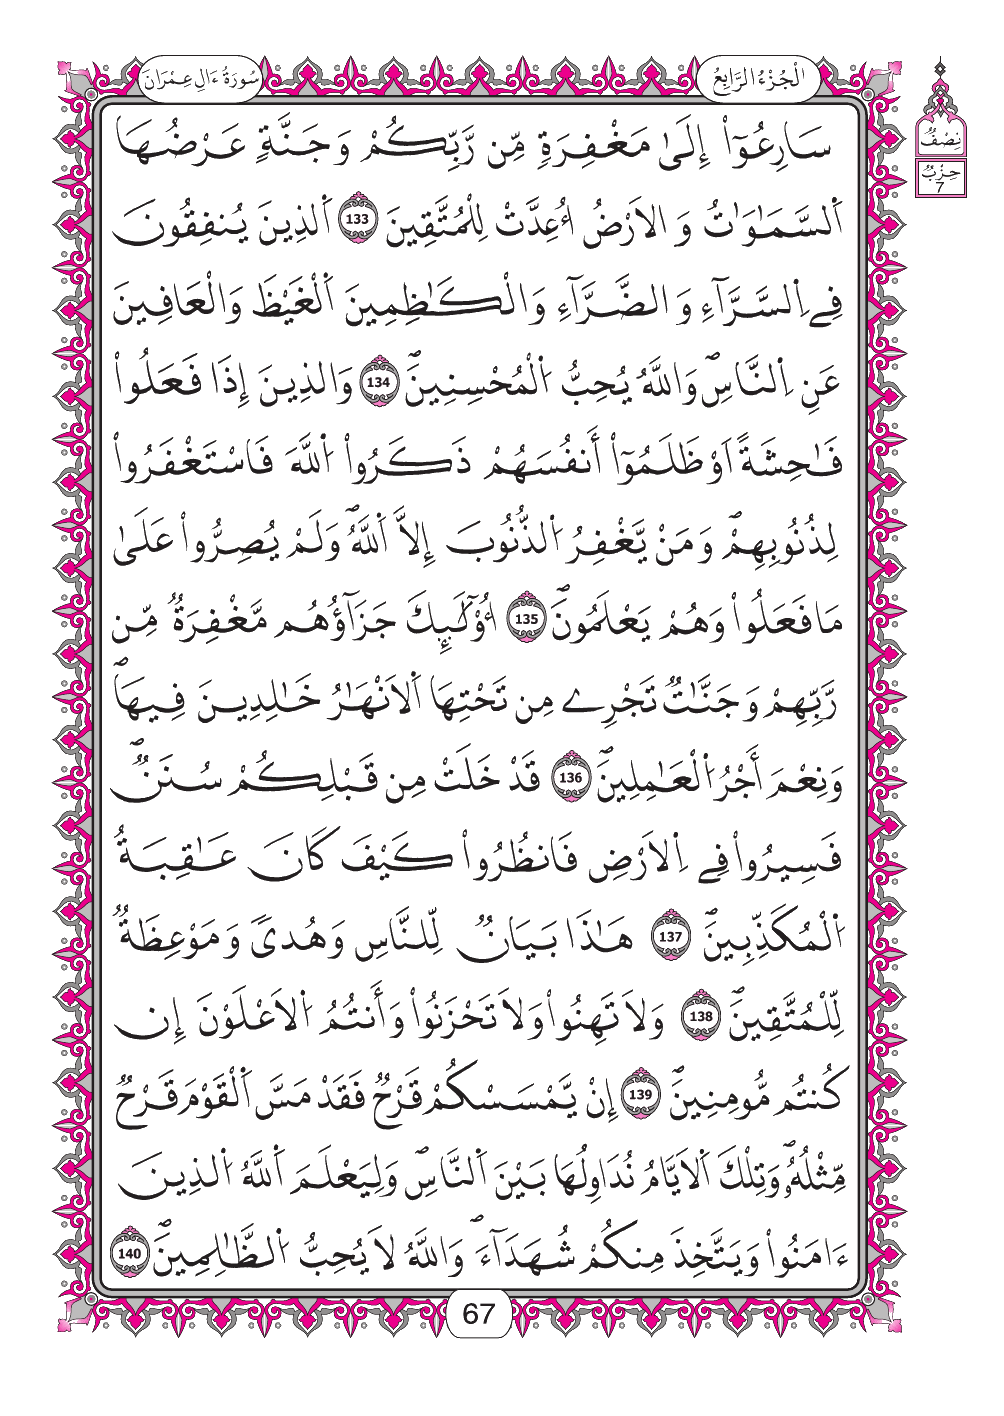 الْجُزْءُ الرَّابِعُ
سُورَةُ ءَالِ عِمْرَانَ
نِصْفُ
حِزْبُ
7
سَارِعُوٓاْ إِلَىٰ مَغْفِرَةٍ مِّن رَّبِّكُمْ وَجَنَّةٍ عَرْضُهَا
اَ۬لسَّمَٰوَٰتُ وَالَارْضُ أُعِدَّتْ لِلْمُتَّقِينَ 133 اَ۬لذِينَ يُنفِقُونَ
فِے اِ۬لسَّرَّآءِ وَالضَّرَّآءِ وَالْكَٰظِمِينَ اَ۬لْغَيْظَ وَالْعَافِينَ
عَنِ اِ۬لنَّاسِۖ وَاللَّهُ يُحِبُّ اُ۬لْمُحْسِنِينَۖ 134 وَالذِينَ إِذَا فَعَلُواْ
فَٰحِشَةً اَوْ ظَلَمُوٓاْ أَنفُسَهُمْ ذَكَرُواْ اُ۬للَّهَ فَاسْتَغْفَرُواْ
لِذُنُوبِهِمْۖ وَمَنْ يَّغْفِرُ اُ۬لذُّنُوبَ إِلاَّ اَ۬للَّهُۖ وَلَمْ يُصِرُّواْ عَلَىٰ
مَا فَعَلُواْ وَهُمْ يَعْلَمُونَۖ 135 أُوْلَٰٓئِكَ جَزَآؤُهُم مَّغْفِرَةٌ مِّن
رَّبِّهِمْ وَجَنَّٰتٌ تَجْرِے مِن تَحْتِهَا اَ۬لَانْهَٰرُ خَٰلِدِينَ فِيهَاۖ
وَنِعْمَ أَجْرُ اُ۬لْعَٰمِلِينَۖ 136 قَدْ خَلَتْ مِن قَبْلِكُمْ سُنَنٌۖ
فَسِيرُواْ فِے اِ۬لَارْضِ فَانظُرُواْ كَيْفَ كَانَ عَٰقِبَةُ
اُ۬لْمُكَذِّبِينَۖ 137 هَٰذَا بَيَانٌ لِّلنَّاسِ وَهُدىً وَمَوْعِظَةٌ
لِّلْمُتَّقِينَۖ 138 وَلَا تَهِنُواْ وَلَا تَحْزَنُواْ وَأَنتُمُ اُ۬لَاعْلَوْنَ إِن
كُنتُم مُّومِنِينَۖ 139 إِنْ يَّمْسَسْكُمْ قَرْحٌ فَقَدْ مَسَّ اَ۬لْقَوْمَ قَرْحٌ
مِّثْلُهُۥۖ وَتِلْكَ اَ۬لَايَّامُ نُدَاوِلُهَا بَيْنَ اَ۬لنَّاسِۖ وَلِيَعْلَمَ اَ۬للَّهُ اُ۬لذِينَ
ءَامَنُواْ وَيَتَّخِذَ مِنكُمْ شُهَدَآءَۖ وَاللَّهُ لَا يُحِبُّ اُ۬لظَّٰلِمِينَۖ 140
67